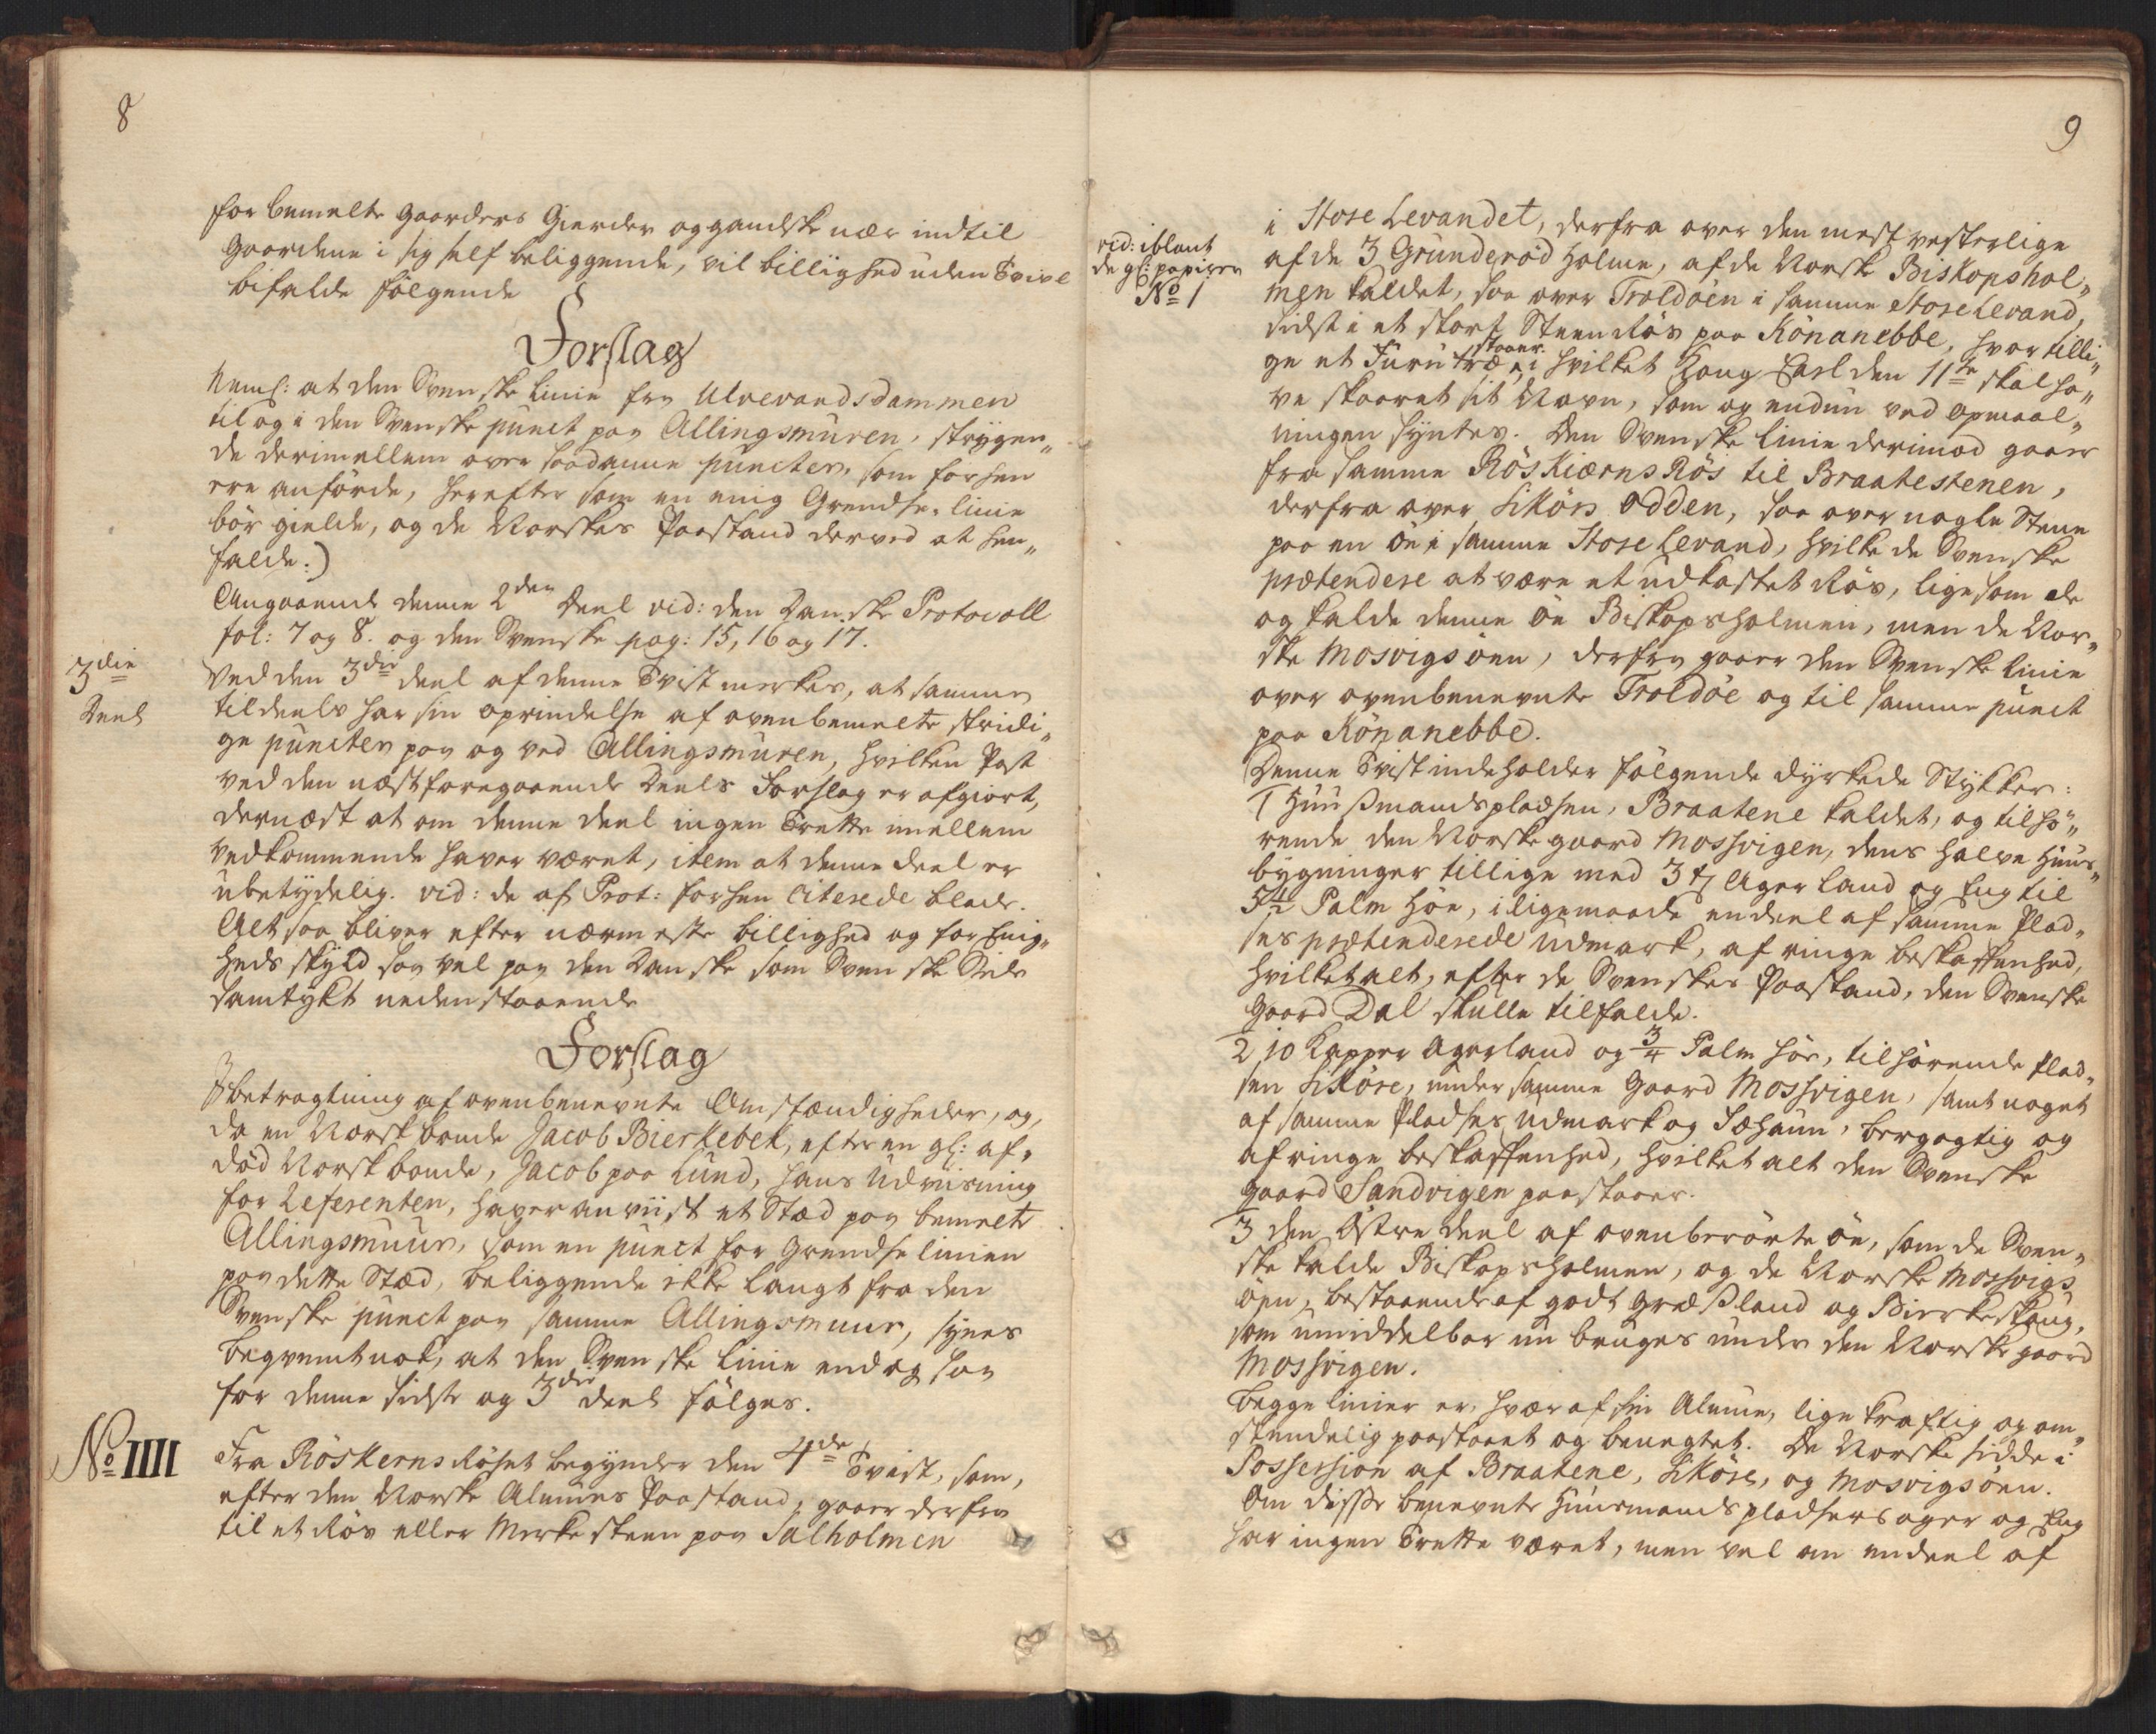 8
for bemelte Gaarders Gierder og gandske nær indtil
Gaardene i sig self beliggende, vil billighed uden Tvivl
bifalde følgende
Forslag
Neml: at den Svenske Linie fra Ulvevandsdammen
til og i den Svenske punct paa Allingsmuren, strygen„
de derimellem over saadanne puncter, som forhen
ere anförde, herefter som en enig Grendse-linie
bör gielde, og de Norskes Paastand derved at hen„
falde:)
Angaaende denne 2den Deel vid: den Danske Protocoll
fol: 7 og 8. og den Svenske pag: 15, 16 og 17.
3die
Deel
Ved den 3die deel af denne Tvist merkes, at samme
tildeels har sin oprindelse af ovenbemelte stridi„
ge puncter paa og ved Allingsmuren, hvilken Post
ved den næstforegaaende Deels Forslag er afgiort,
dernæst at om denne deel ingen Trette imellem
Vedkommende haver været, item at denne deel er
ubetydelig. vid: de af Prot: forhen Citerede blade.
Alt saa bliver efter nærmeste billighed og for Enig„
heds skyld saa vel paa den Danske som Svenske Side
samtykt nedenstaaende
Forslag
I betragtning af ovenbenevnte Omstændigheder, og,
da en Norsk bonde Jacob Bierkebek, efter en gl: af„
död Norsk bonde, Jacob paa Lund, hans Udviisning
for Referenten, haver anviist et Stæd paa bemelte
Allingsmuur, som en punct for Grendse linien
paa dette Stæd, beliggende ikke langt fra den
Svenske punct paa samme Allingsmuur, synes
beqvemt nok, at den Svenske Linie endog saa
for denne sidste og 3die deel fölges.
No IIII
Fra Röskerns Röset begynder den 4de Tvist, som,
efter den Norske Almues Paastand, gaaer derfra
til et Rös eller Merke steen paa Salholmen
9
vid: iblant
de gl: papirer
No 1
i Store Levandet, derfra over den mest vesterlige
af de 3 Grunderöd Holme, af de Norske Biskopshol„
men kaldet, saa over Troldöen i samme Store Levand,
sidst i et stort Steen Rös paa Könanebbe, hvor tilli„
ge et Furu træ staaer, i hvilket Kong Carl den 11te skal ha„
ve skaaret sit Navn, som og endnu ved opmaal„
ningen syntes. Den Svenske Linie derimod gaaer
fra samme RösKiærns Rös til Braatestenen,
derfra over Likörs Odden, saa over nogle Stene
paa en öe i samme Store Levand, hvilke de Svenske
prætendere at være et udkastet Rös, ligesom de
og kalde denne öe Biskopsholmen, men de Nor„
ske Mosvigsöen, derfra gaaer den Svenske linie
over ovenbenevnte Troldöe og til samme punct
paa Könanebbe.
Denne Tvist indeholder fölgende dyrkede Stykker:
1 Huusmandspladsen, Braatene kaldet, og tilhö„
rende den Norske gaard Mossvigen, dens halve Huus„
bygninger tillige med 3 Tdr Ager Land og Eng til
5½ Palm Höe, iligemaade endeel af samme Plad„
ses prætenderede Udmark, af ringe beskaffenhed,
hvilket alt, efter de Svenskes Paastand, den Svenske
Gaard Dal skulle tilfalde.
2, 10 Kapper Agerland og ¾ Palm höe, tilhörende Plad„
sen Liköse, under samme Gaard Mossvigen, samt noget
af samme Pladses Udmark og Sæhaun, bergagtig og
af ringe beskaffenhed, hvilket alt den Svenske
gaard Sandvigen paastaaer.
3 den Östre deel af ovenberörte öe, som de Sven„
ske kalde Biskopsholmen, og de Norske Mossvigs
öen, bestaaende af godt Græsland og Bierkeskoug,
som umiddelbar nu bruges under den Norske gaard
Mossvigen.
Begge linier er, hver af sin Almue, lige kraftig og om„
stendelig paastaaet og benegtet. De Norske sidde i
Possession af Braatene, Liköse, og Mosvigsöen.
Om disse benevnte Huusmandspladsers ager og Eng
har ingen Trette været, men vel om endeel af